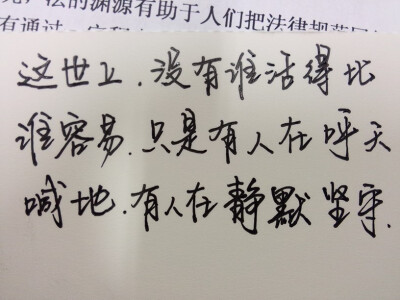 法的渊源有助于人们把法律规范
有通过
这世上.没有谁活得比
谁容易.只是有人在呼天
喊地.有人在静默坚守.